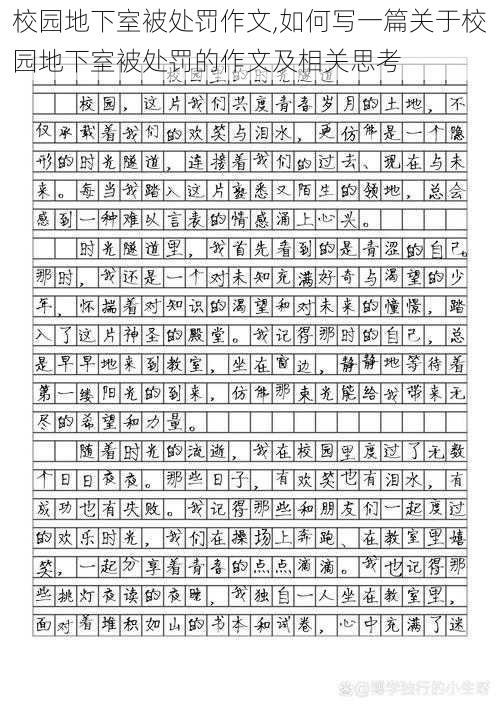 校园地下室被处罚作文,如何写一篇关于校
园地下室被处罚的作文及相关思考
校园里的时光隧道
校园，这片我们共度青春岁月的土地，不
仅承载着我们的欢笑与泪水，更仿佛是一个隐
形的时光隧道，连接着我们的过去、现在与未
来。每当我踏入这片熟悉又陌生的领地，总会
感到一种难以言表的情感涌上心头。
时光隧道里，我首先看到的是青涩的自己。
那时，我还是一个对未知充满好奇与渴望的少
年，怀揣着对知识的渴望和对未来的憧憬，踏
入了这片神圣的殿堂。我记得那时的自己，总
是早早地来到教室，坐在窗边，静静地等待着
第一缕阳光的到来，仿佛那束光能给我带来无
尽的希望和力量。
随着时光的流逝，我在校园里度过了无数
个日日夜夜。那些日子，有欢笑也有泪水，有
成功也有失败。我记得那些和朋友们一起度过
的欢乐时光，我们在操场上奔跑、在教室里嬉
笑，一起分享着青春的点点滴滴。我也记得那
些挑灯夜读的夜晚，我独自一人坐在教室里，
面对着堆积如山的书本和试卷，心中充满了迷
@博学独行的小生呀